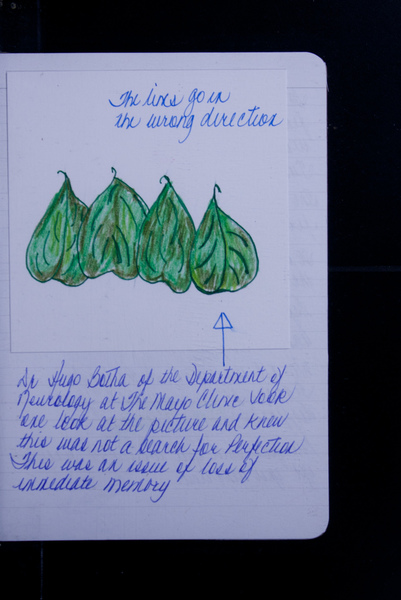 The lines go in
the wrong direction
Dr Hugo Botha of the Department of
Neurology at The Mayo Clinic took
one look at the picture and knew
this was not a search for Perfection
This was an issue of loss of
immediate memory